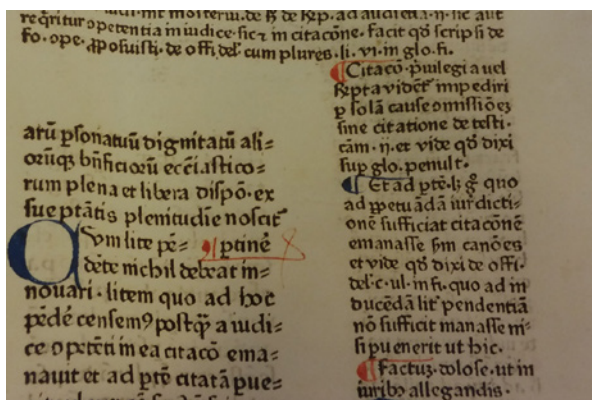 reqritur opetentia in iudice·sic⁊ in citacōne·facit qđ scripsi de
fo·ope·ꝓposuisti·de offi·del·cum plures·li·vi·in glo·fi·
atū ꝑsonatuū dignitatū ali⸗
orūqꝫ bn̄ficiorū ecc̄iastico⸗
rum plena et libera dispō·ex
sue ptātis plenitudīe noscit᷑
Cvm lite pē⸗ ptinē
dēte nichil debeat in⸗
nouari·litem quo ad hoc
pēdē censemꝰ postꝙ̄ a iudi⸗
ce opetēti in ea citacō ema⸗
nauit et ad ptē citatā ꝑue⸗
Citacō·ꝑ̄uilegia uel
sc̄pta vident᷑ impediri
ꝑ solā cause omissiōeꝫ
sine citatione de testi·
cām·ij·et vide qđ dixi
sup glo·penult·
Et ad ptē·lꝫ g̊ quo
ad ꝑpetuādā iurdicti⸗
onē sufficiat citacōnē
emanasse ẜm canōes
et vide qđ dixi de offi·
del·c·ul·in fi·quo ad in
ducēdā lit᷑ pendentiā
nō sufficit manasse ni⸗
si ꝑuenerit ut hic·
Factuꝫ·dolose·ut in
iuribꝰ allegandis·